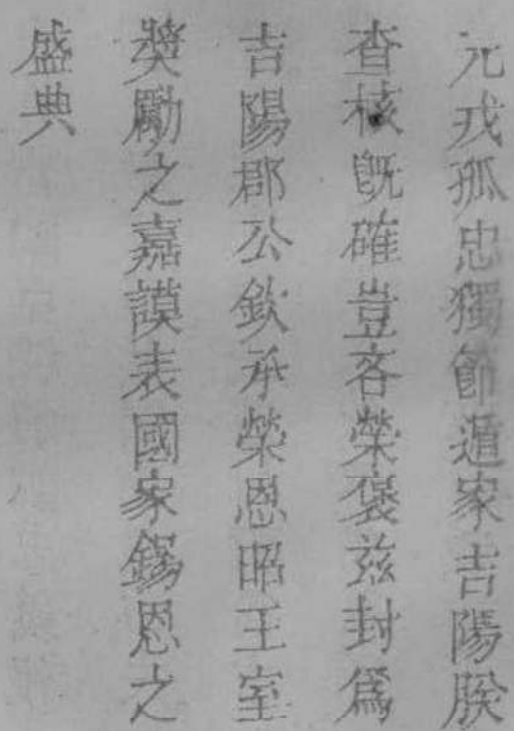 元戎孤忠獨節遁家吉陽朕
查核既確豈吝榮褒兹封爲
吉陽郡公欽承榮恩昭王室
奬勵之嘉謨表國家錫恩之
盛典